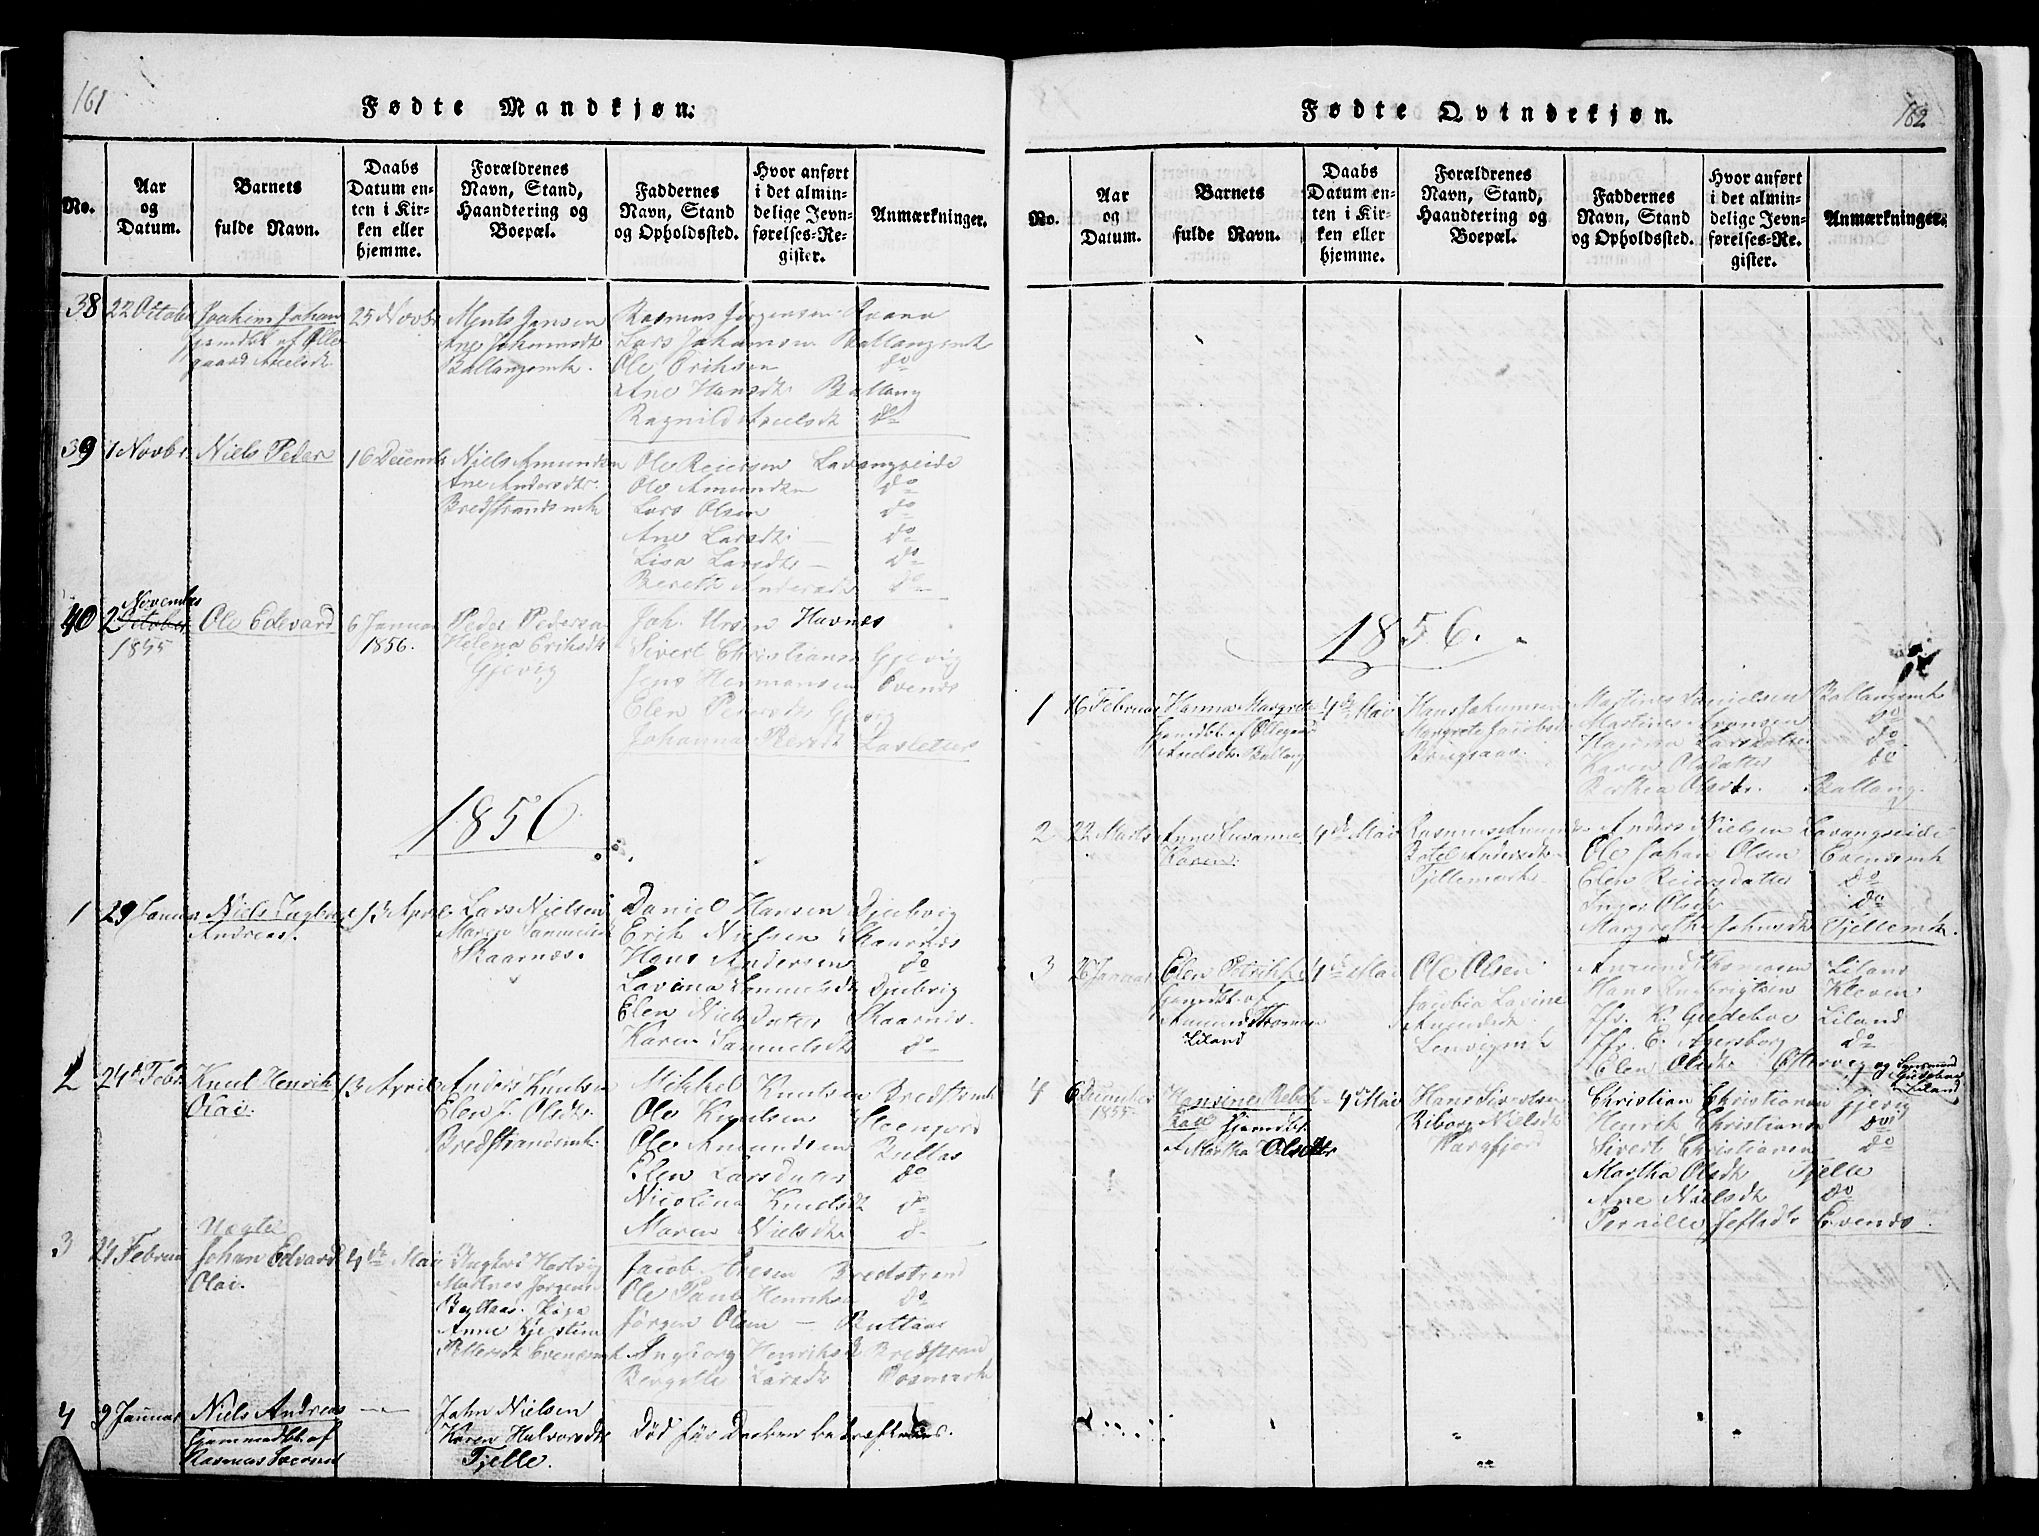 161
Fødte Mandkjøn.
No.
Aar
og
Datum.
Barnets
fulde Navn.
Daabs
Datum en-
ten i Kir-
ken eller
hjemme.
Forældrenes
Navn, Stand,
Haandtering og
Boepæl.
Faddernes
Navn, Stand
og Opholdssted.
Hvor anført
i det almin-
delige Jevn-
førelses-Re-
gister.
Anmærkninger.
38 22 October Joachim Johan 25 Novbr
Ane Johannesdtr
Ballangsmk.
Rasmus Jørgensen Raana
Lars Johansen Ballangsmk
Ole Eriksen do
Ane Hansdtr Ballang
Ragnild Axelsdtr do
39 1 Novbr. Niels Peder 16 Decembr Niels Amundsen
Ane Andersdtr.
Bredstrandsmk
Ole Reiersen Lavangseide
Ole Amundsen do
Lars Olsen do
Ane Larsdtr do
Lisa Larsdtr do
Bereth Andersdtr do
40 2 November
October
1855
Ole Edvard 6 Januar
1856.
Peder Pedersen
Helena Eriksdtr
Gjevig
Havnes
Sivert Christiansen Gjevig
Jens Hermansen Evenes
Elen Pedersdtr Gjevig
Johanna
1856.
1 29 Januar Niels Ingbrigt
Andreas.
13 April Lars Nielsen
Maren Samuelsdtr
Skaarnæs.
Daniel Hansen Djubvig
Erik Nielsen Skaarnæs
Hans Andersen do
Lavina Samuelsdtr Djubvig
Elen Nielsdatter Skaarnæs.
Karen Samuelsdtr do
2 24de Febr Knut Henrik
Olai.
13 April Anders Knutsen
Elen J. Olsdtr
Bredstrandsmk.
Mikkel Knutsen Bredstrmk
Ole Knutsen
Ole Amundsen Bultas
Elen Larsdatter do
Nicolina Knutsdtr do
Maren Nielsdtr do
3 24 Februar Uægte
Johan Edvard
Olai.
4de Mai Ungkarl Hartvig
Mathias Jørgensen
Pige
Anne Kjerstine
Pettersdtr Evenesmk
Jacob Aresen Bredstrand
Ole Paul Henriksen do
Jørgen Olsen — Bultaas
Ingborg Henriksdtr Bredstrand
Bergitte Larsdtr Posmark
4 9 Januar Niels Andreas
Hjemmedøbt af
Rasmus Iversen
John Nielsen
Karen Halvorsdtr
Tjelle.
Død før Daaben bekræftedes.
162
Fødte Qvindekjøn.
No.
Aar
og
Datum.
Barnets
fulde Navn.
Daabs
Datum en-
ten i Kir-
ken eller
hjemme.
Forældrenes
Navn, Stand,
Haandtering og
Boepæl.
Faddernes
Navn, Stand
og Opholdssted.
Hvor anført
i det almin-
delige Jevn-
førelses-Re-
gister.
Anmærkninger.
1856.
1 16 Februar Hanna Margrete
hjemdbt af Ollegaard
Axelsdtr Ballang
4de Mai Hans Johansen
Margrete Jacobsdtr
Martines Danielsen Ballangsmk
Martines Aronsen do
Hanna Larsdatter do
Karen Olsdatter do
Berthea Olsdtr. Ballang.
2 22 Marts Anne Susanne
Karen.
4de Mai Rasmus Amundsen
Andersdtr
Tjellemark.
Anders Nielsen Lavangseide
Ole Johan Olsen Evenesmk
Elen Reiersdatter do
Inger Olsdtr do
Margrethe Johnsdtr Tjellemk.
3 26 Januar Elen
hjemdbt af
Amund Thomasen
Liland
4de Mai Ole Olsen
Jacobia Lavine
Amundsdtr
Lenvigmk
Amund Thomasen Liland
Hans Ingbrigtsen Kleven
Jfr. K. Gjedeboe Liland
Jfr. E. Agersborg do
Elen Olsdtr Østervig og Lensmand
Gjedeboe
Liland
4 6 December
1855
Hansine Rebek-
ka
hjemdbt
af Martha Olsdatter
4de Mai Hans Sivertsen
Riborg Nielsdtr
Vargfjord
Christian Christiansen Gjevig
Henrik Christiansen do
Sivert Christiansen do
Martha Olsdtr Tjelle
Ane Nielsdtr do
Pernille Jeftsdtr Evenes.